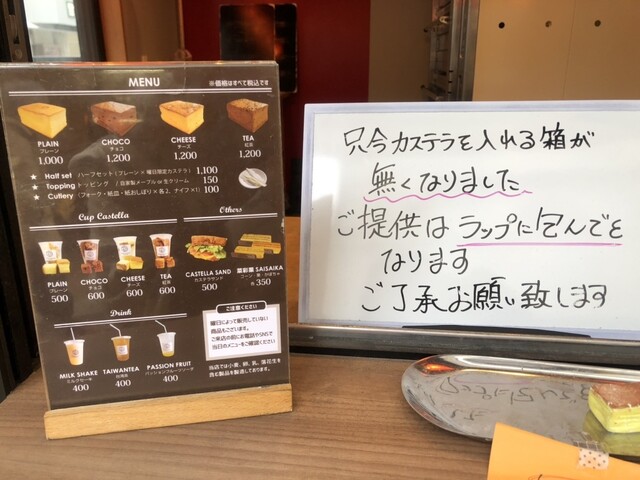 MENU
※価格はすべて税込です
PLAIN
プレーン
1,000
CHOCO
チョコ
1,200
CHEESE
チーズ
1,200
TEA
紅茶
1,200
★ Half set ハーフセット(プレーン×曜日限定カステラ) 1,100
★ Topping トッピング / 自家製メープル or 生クリーム 150
★ Cutlery (フォーク・紙皿・紙おしぼり×各2、ナイフ×1) 100
Cup Castella
PLAIN
プレーン
500
CHOCO
チョコ
600
CHEESE
チーズ
600
TEA
紅茶
600
Others
CASTELLA SAND
カステラサンド
500
菜彩菓 SAISAIKA
350
Drink
MILK SHAKE
ミルクセーキ
400
TAIWANTEA
台湾茶
400
PASSION FRUIT
パッションフルーツソーダ
400
ご注意ください
曜日によって販売していない
商品もございます。
ご来店の前にお電話やSNSで
当日のメニューをご確認ください
当店では小麦、卵、乳、落花生を
含む製品を製造しております。
只今カステラを入れる箱が
無くなりました
ご提供はラップに包んでと
なります
ご了承お願い致します